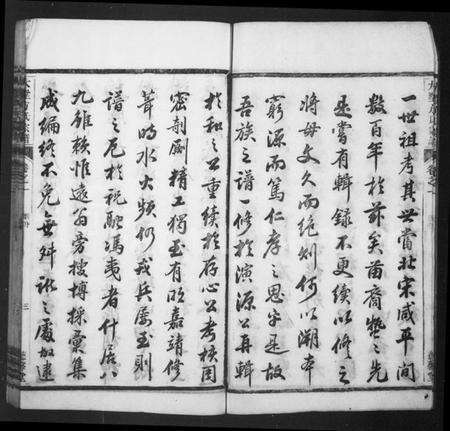 一世祖考其世當北宋咸平間
數百年於茲矣苗裔之先
是嘗有輯錄不更續以修之
將毋文久而絕則何以溯本
窮源而篤仁孝之思乎是故
吾族之譜一修於演源公再輯
於和之公重續於存心公考核周
密剞劂精工獨至有明嘉靖修
葺時水火頻仍戎兵屢至則
譜之厄於祝融馮夷者什居八
九雖松惟遠翁旁搜博採彙集
成編終不免無舛訛之處加建